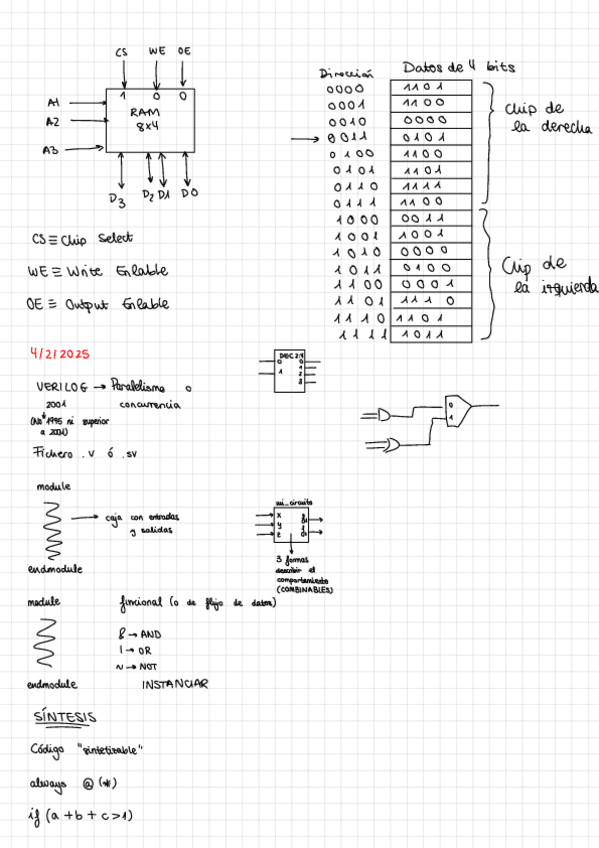 CS WE OE
1 0 0
A1
A2
A3
RAM
8x4
D3 D2 D1 D0
Dirección Datos de 4 bits
0000 1101
0001 1100
0010 0000
0011 0101
0100 1100
0101 1101
0110 1111
0111 1100
chip de
la derecha
1000 0011
1001 1001
1010 0000
1011 0100
1100 0001
1101 1110
1110 1101
1111 1011
Chip de
la izquierda
CS ≡ Chip Select
WE ≡ Write Enlable
OE ≡ Output Enlable
4/2/2025
DEC 2/4
0 0
1 1
2
3
VERILOG → Paralelismo o
2001 concurrencia
(No 1995 ni superior
a 2001)
Fichero .v ó .sv
0
1
module
caja con entradas
y salidas
endmodule
mi_circuito
x
y
z
3 formas
describir el
comportamiento
(COMBINABLES)
module funcional (o de flujo de datos)
& → AND
| → OR
~ → NOT
endmodule INSTANCIAR
SÍNTESIS
Código "sintetizable"
always @ (*)
if (a + b + c > 1)